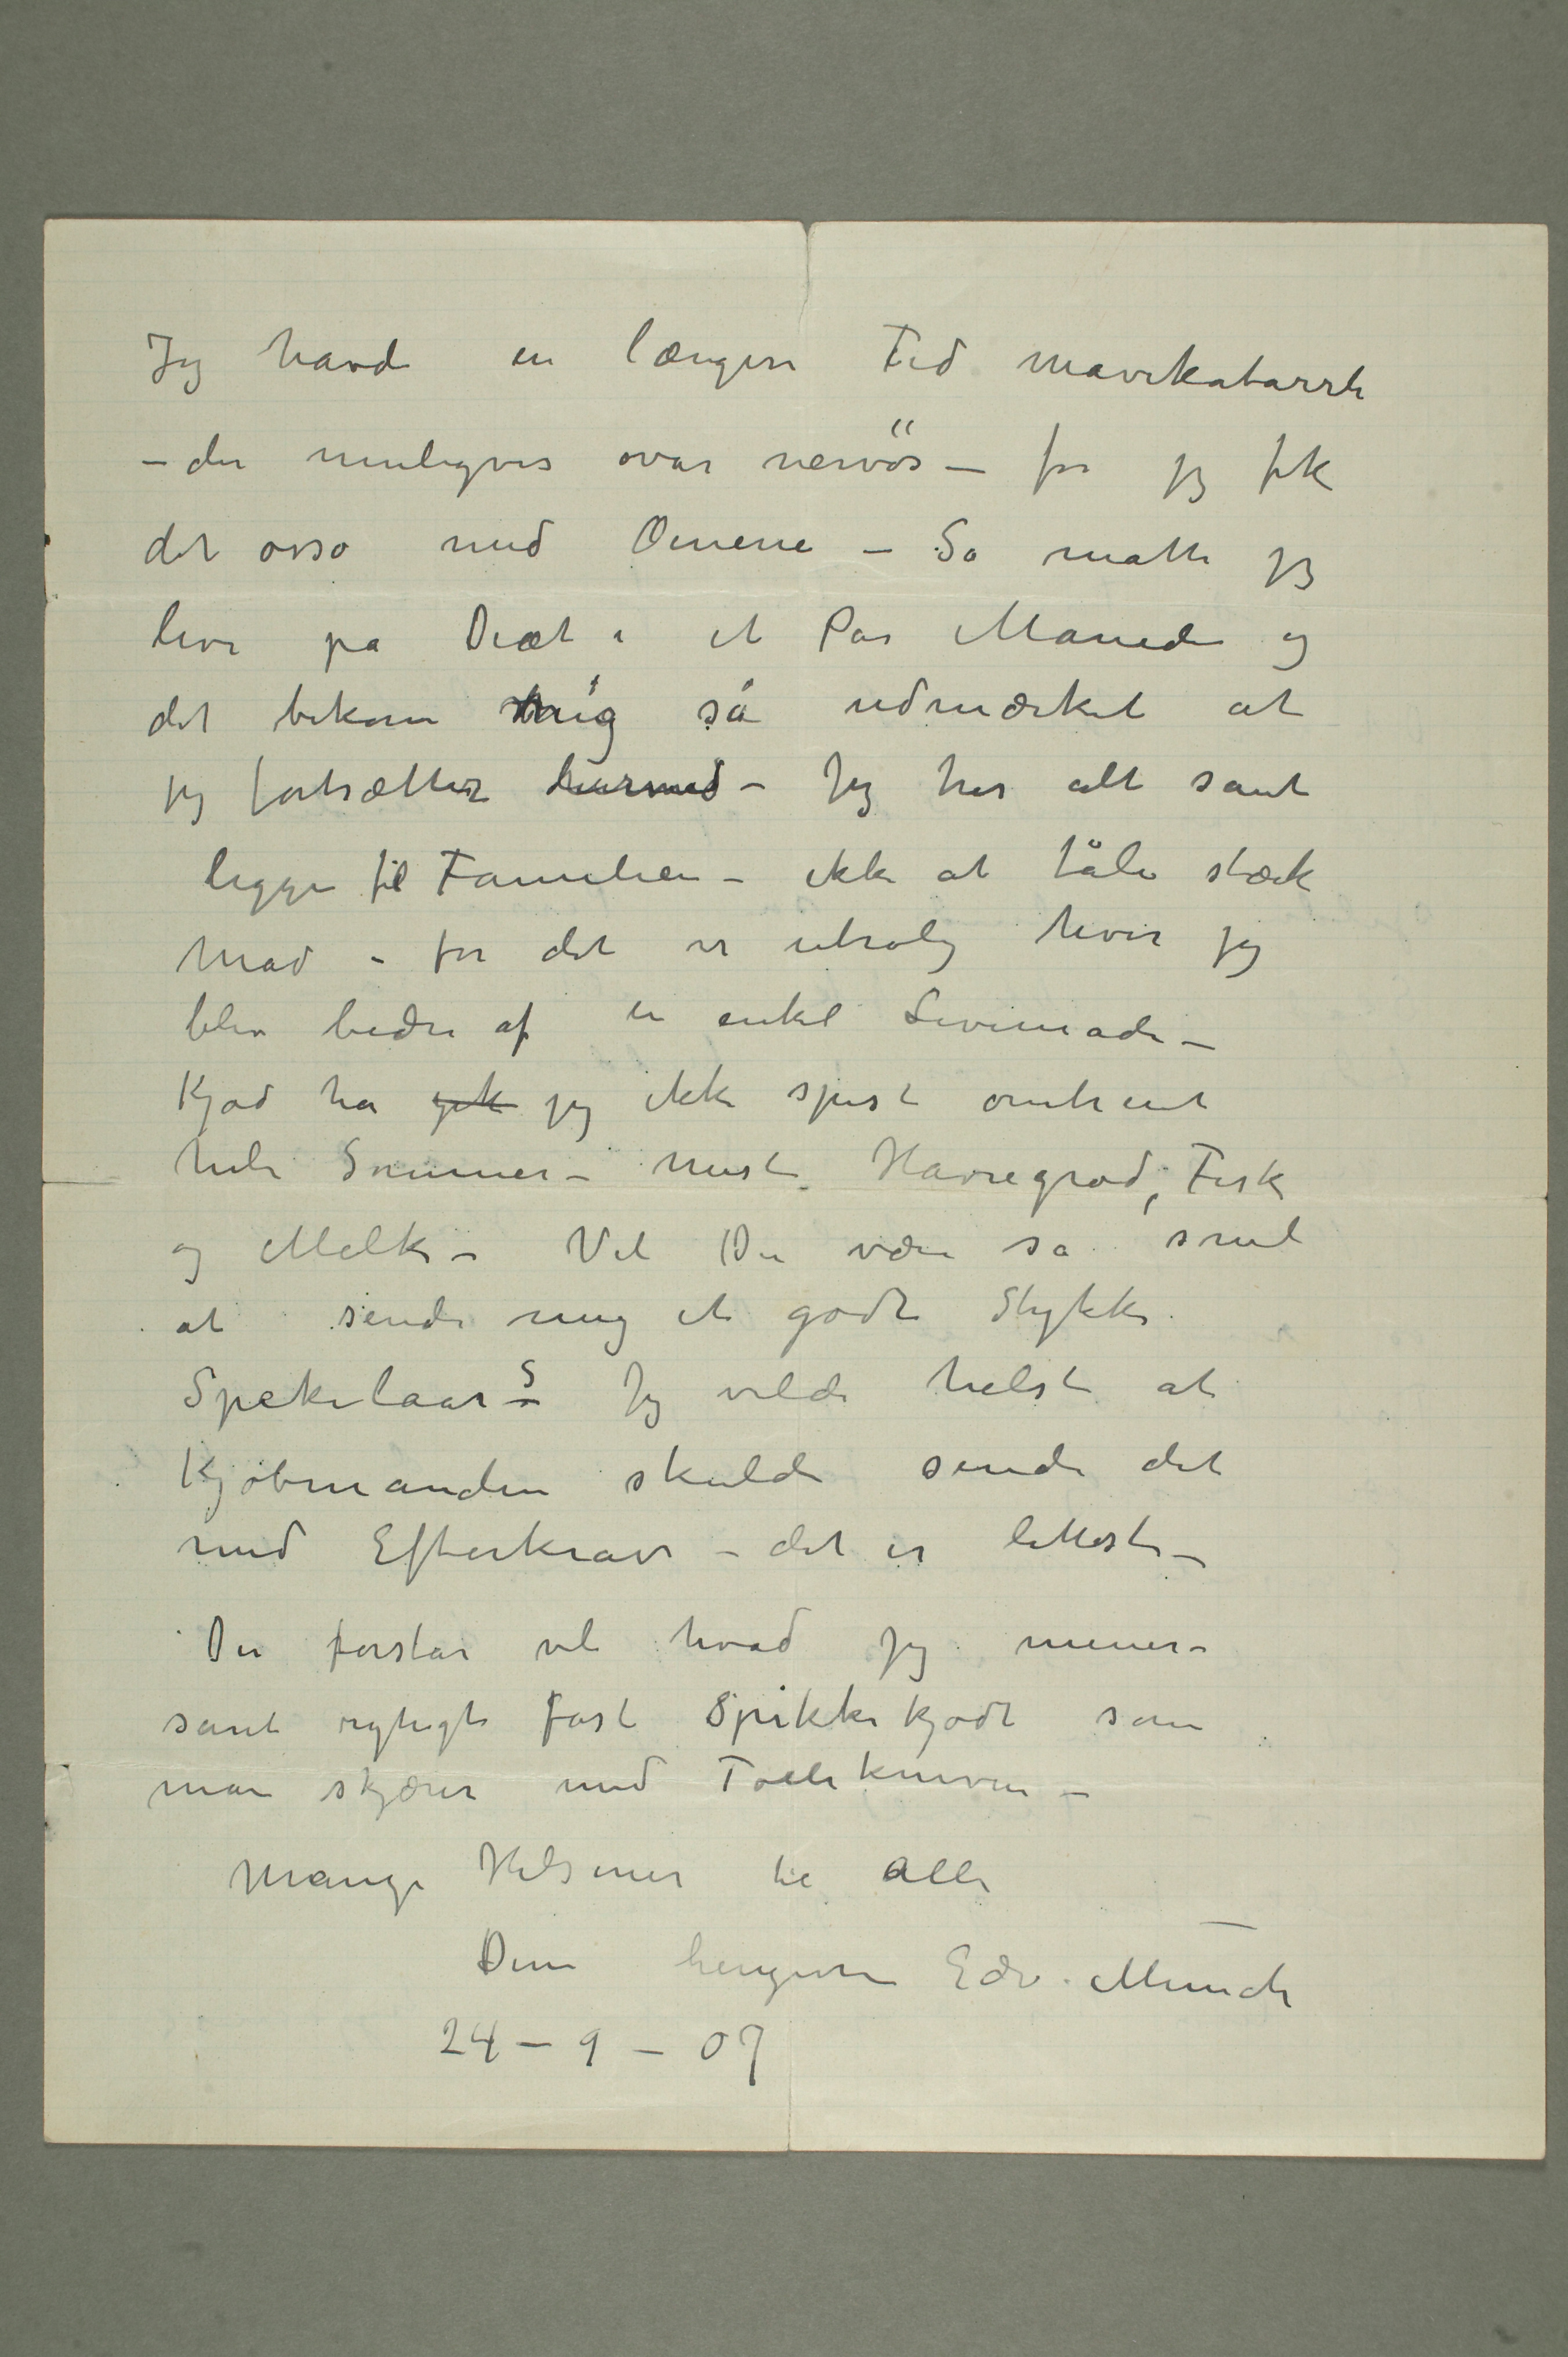 Jeg havde en længere Tid mavekatarrh
– der muligvis ovar nervös – for jeg fik
det osso med Ørnene – Så matte jeg
leve pa Diæt i et Par Maneder og
det bekom mig så udmærket at
jeg fortsætter hermed – Jeg har alt sant
ligge til Familien – ikke at tåle stærk
Mad – for det er utrolig hvor jeg
blev bedre af en enkel Levemade –
Kjød har jeg ikke spist omtrent
hele Sommer – mest Havregrød, Fisk
og Melk – Vil Du være sa snil
at sende mig et godt Stykke
Spekelaar S Jeg vilde helst at
Kjøbmanden skulde sende det
med Efterkrav – det er lettest –
Du forstar vel hvad jeg mener –
sant rigtigt fast Spikkekjødt som
man skjærer med Tollekniven –
Mange Hilsener til alle
Din hengivne Edv. Munch
24 – 9 – 07